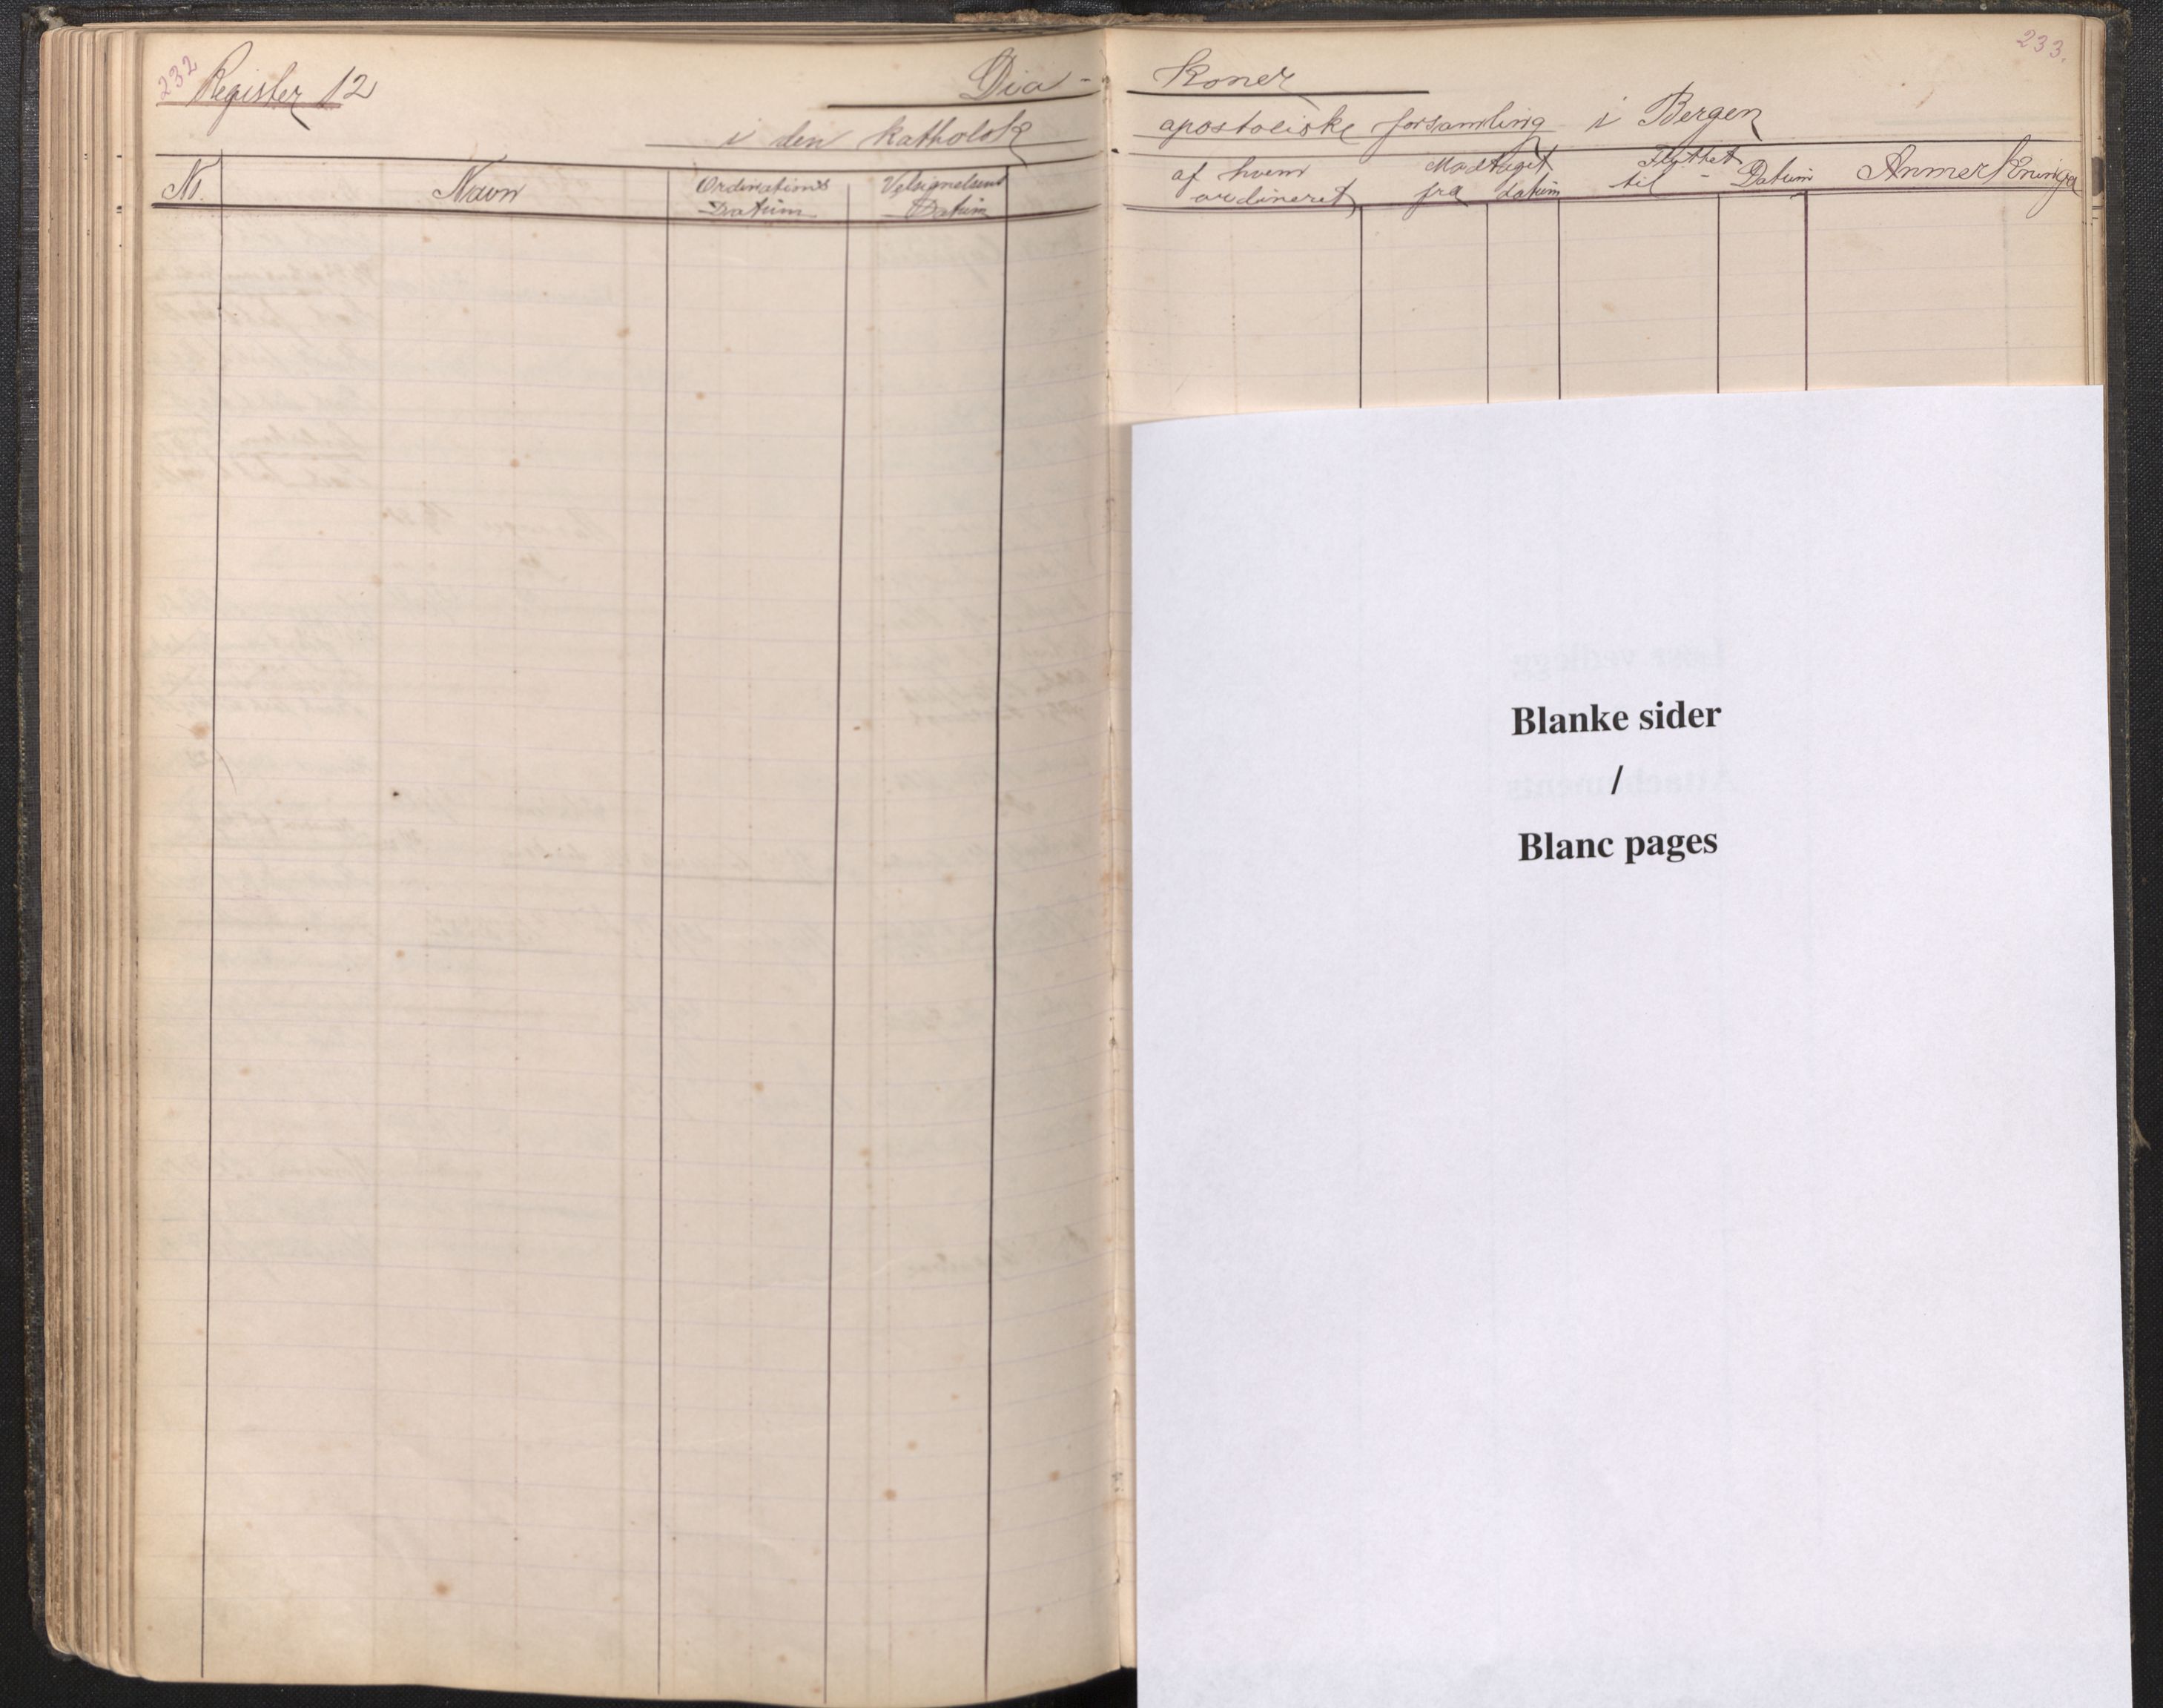 232
Register 12
Dia-
i den katholsk
No. Navn Ordinations Datum Velsignelsens Datum
233.
koner
apostoliske forsamling i Bergen
af hvem ordineret Modtaget fra datum Flyttet til - Datum Anmerkninger
Blanke sider
/
Blanc pages